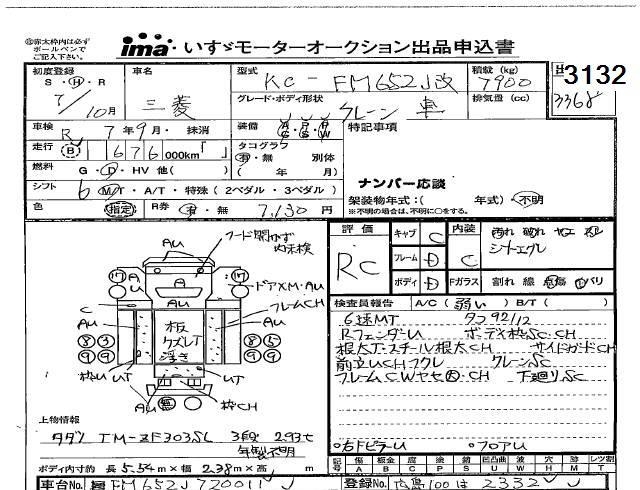 ㊟赤太枠内は必ず
ボールペンで
ご記入下さい。
ima・いすゞモーターオークション出品申込書
初度登録
S・H・R
7/10月
車名
三菱
型式
KC-FM652J改
積載 (kg)
7900
排気量 (cc)
3132
車検 R 7年9月・抹消
グレード・ボディ形状
クレーン 車
装備
特記事項
走行 B 676 000km「 」
タコグラフ
有・無 別体
( 年 月)
燃料 G・D・HV 他( )
ナンバー応談
シフト 6 MT・A/T・特殊 (2ペダル・3ペダル)
架装物年式:( 年式)・不明
※不明の場合は、不明に○をする。
色 指定 R券 有・無 7,130円
評価
RC
キャブ C
フレーム D
ボディ D
内装 C
Fガラス 割れ 線 点傷 トバリ
フード開かず
内未検
AU
ドアXM・AU
フレームCH
C
AU
板
クズレT
浮き
UT
枠CH
AU
検査員報告 A/C (弱い) B/T ( )
6速MT タコ92/12
RフェンダーU ボディ枠SC・CH
根太T・スチール根太CH サイドガードCH
前立UCHフクレ クレーンSC
フレームCWヤセ大・CH 下廻りSC
・右ドピラーU ・フロアU
上物情報
タダノ TM-ZF303SL 3段 2.93t
年製不明
ボディ内寸約 長 5.54m×幅 2.38m×高 m
記号 傷 A 板金 B 腐 C 塗 P 錆 S 凹凸曲 U 要 W 穴 H 跡 M レンズ割 T
車台No. FM652J720011
登録No. 広島100は2332